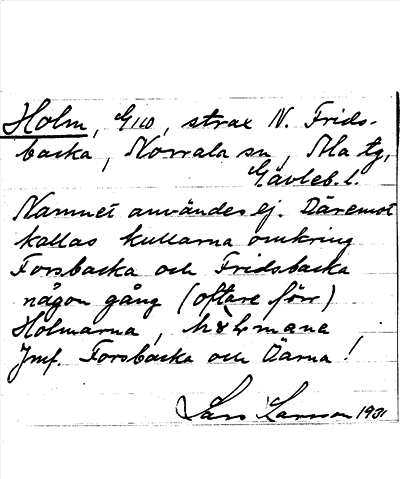 Holm, G110, strax N. Frids-
backa, Norrala sn, Ma tg,
Gävleb. l.
Namnet användes ej. Däremot
kallas kullarna omkring
Forsbacka och Fridsbacka
någon gång (oftare förr)
Holmarna,
Jmf. Forsbacka och Öarna!
Lars Larsson 1931